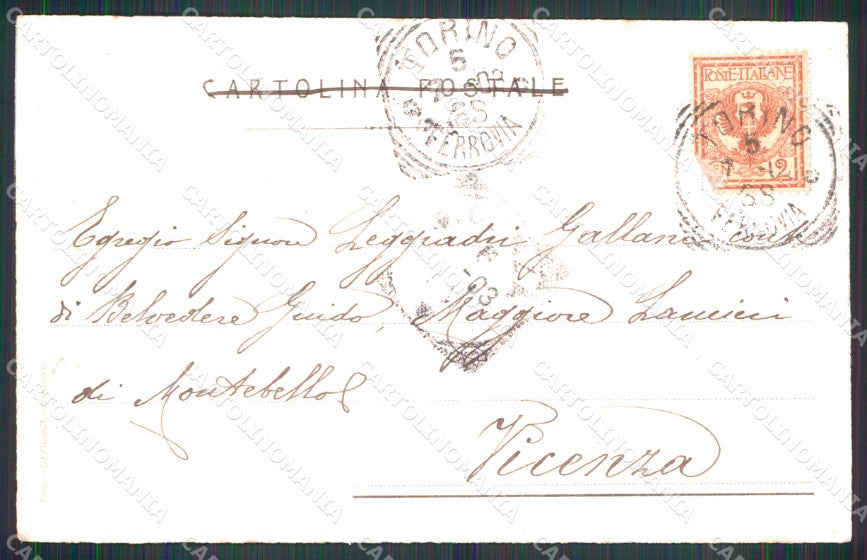 TORINO
5
FERROVIA
CARTOLINA POSTALE
POSTE-ITALIANE
2
TORINO
5
FERROVIA
Egregio Signore Leggiadri Gallani
di Belvedere Guido, Maggiore Lancieri
di Montebello
-03
Vicenza
CARTOLINOMANIA